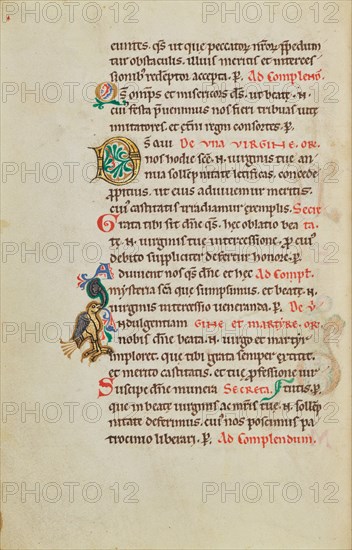 eunteS. qs ut que peccatorum nrorum prepedium
tur obstaculis. illius meritis et interces
sionibus redemptos accepta. P. Ad Complend
O s omnips et misericors ds. ut beate. N.
cui festa pvenimus nos fieri tribuas vite
imitatores. et etni regni consortes. P.
D s qui De una virgine. or
nos hodie sce. N. virginis tue an
nua sollepnitate letificas. concede
ppitius. ut eius adiuvemur meritis.
cuius castitatis irradiamur exemplis. Secre
Grata tibi sit dne qs. hec oblatio bea ta
te. N. virginis tue intercessione. P cui
debito suppliciter defertur honore. P.
Adiuvent nos qs dne et hec Ad Compl.
mysteria scm que sumpsimus. et beate. N.
virginis intercessio veneranda. P. De v
Indulgentiam gine et martyre. or
nobis dne beata. N. virgo et martyr
imploret. que tibi grata semper extitit.
et merito castitatis. et tue pfessione vir
Suscipe dne munera Secreta. tutis. P.
que in beate virginis ac mris tue. N. sollep
nitate deferimus. cuius nos possimus pa
trocinio liberari. P. Ad Complendum.